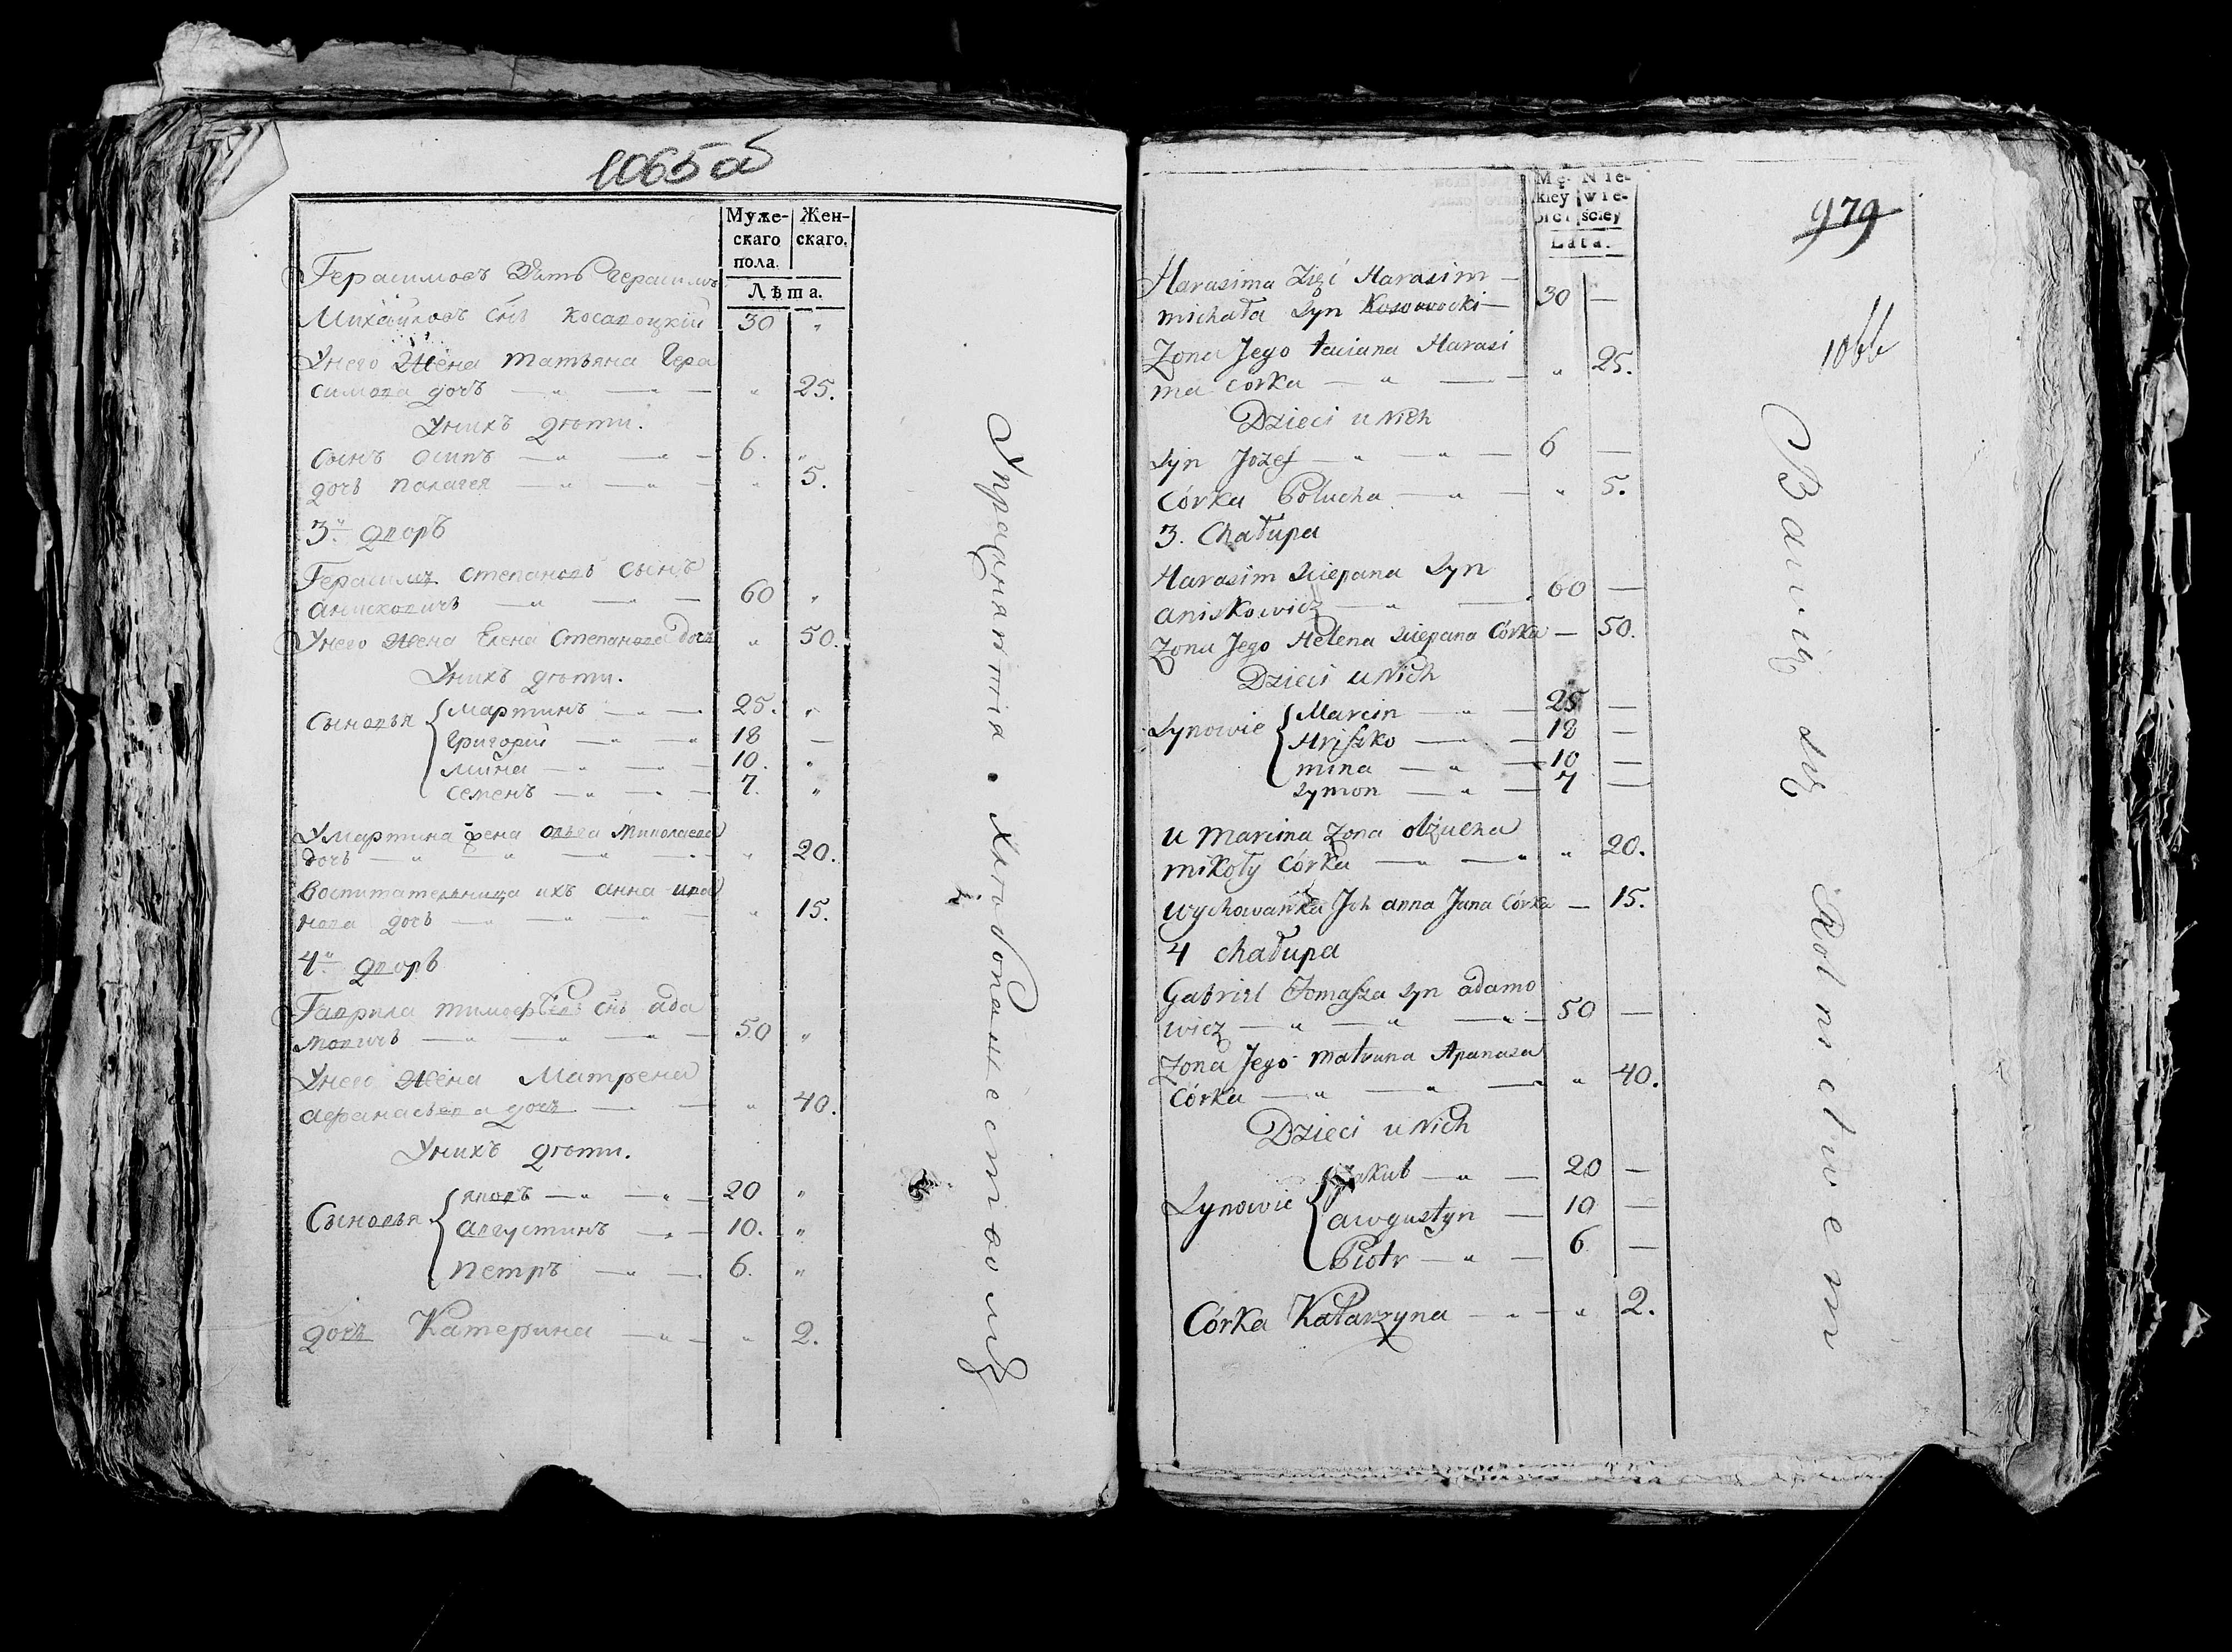 1065 об
Муже- Жен-
скаго скаго.
пола.
Лѣта.
Герасимовъ Зять Герасимъ
Михайловъ снъ Косавоцкій 30 "
Унего Жена Татьяна Гера
симова дочъ — " — — " 25.
Унихъ дѣти.
Сынъ Осипъ — " — — 6. "
дочъ Палагея — " — " — " 5.
3й дворъ
Герасимъ Степановъ сынъ
Анисковичъ — " — — 60 "
Унего Жена Елена Степанова дочъ " 50.
Унихъ дѣти.
Сыновья Мартинъ — " — 25. "
Григорій — " — 18 —
Мина — " — 10. "
Семенъ — " — 7. "
Умартина жена Ольга Миколаева
дочъ — " — " — " 20.
Воспитательница ихъ Анна Ива
нова дочъ — " — " — " 15.
4й дворъ
Гаврила Тимофѣевъ снъ Ада
мовичъ — " — " — 50 "
Унего Жена Матрена
Афанасьева дочъ — " — " 40.
Унихъ дѣти.
Сыновья Яковъ — " — " — 20 "
Августинъ — " — 10. "
Петръ — " — 6. "
дочъ Катерина — " — " 2.
Упражнятця Хлѣбопашествомъ
Mę- Nie-
kiey wie-
płci ściey
Lata.
979
1066
Harasima Zięć Harasim —
michała Syn Kosowocki — 30 —
Zona Jego taciana Harasi
ma corka — " — — " 25.
Dzieci u Nich
Syn Jozef — " — " — 6 —
Córka Połucha — " — " 5.
3. Chałupa
Harasim Sciepana Syn
aniskowicz — " — 60 —
Zona Jego Helena Sciepana Córka — 50.
Dzieci u Nich
Synowie Marcin — " — 25 —
Hryszko — " — 18 —
mina — " — 10 —
Symon — " — 7 —
u Marcina Zona olżucha
mikoły Córka — " — " " 20.
wychowanka Joh anna Jana Córka — 15.
4 chałupa
Gabriel Tomasza Syn adamo
wicz — " — " — " — 50 —
Zona Jego matruna Apanasa
Córka — " — " — " " 40.
Dzieci u Nich
Synowie Jakub — " — 20 —
awgustyn — 10 —
Piotr — " — 6 —
Córka Katarzyna — " — " 2.
Bawią się Rolnictwem